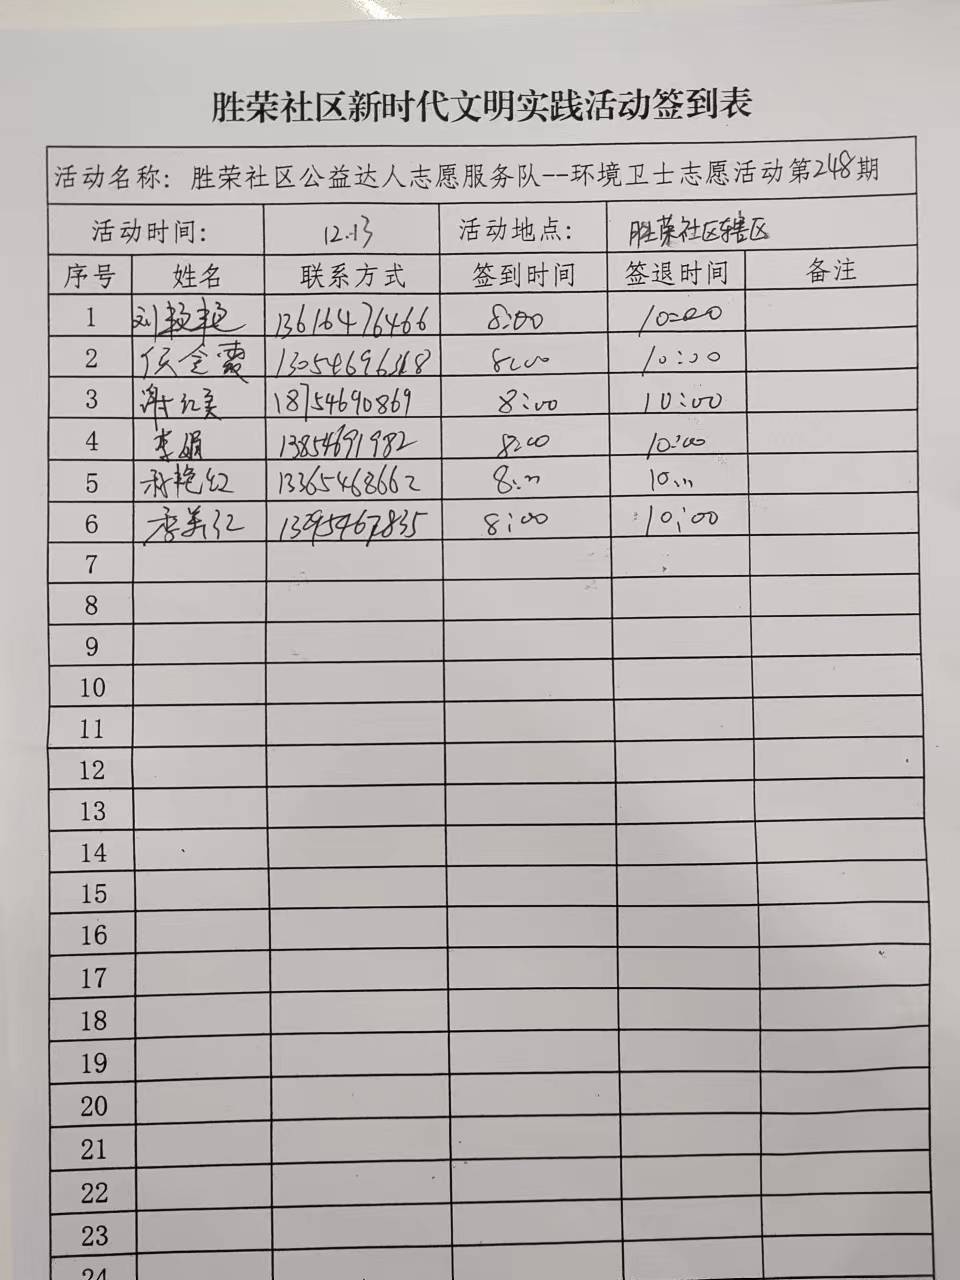 胜荣社区新时代文明实践活动签到表
活动名称：胜荣社区公益达人志愿服务队--环境卫士志愿活动第248期
活动时间： 12.13 活动地点： 胜荣社区辖区
序号 姓名 联系方式 签到时间 签退时间 备注
1 刘艳艳 13616476466 8:00 10:00
2 13054696368 8:00 10:00
3 谢红美 18754690869 8:00 10:00
4 李娟 13854691982 8:00 10:00
5 艳红 13365468662 8:00 10:00
6 李美红 8:00 10:00
7
8
9
10
11
12
13
14
15
16
17
18
19
20
21
22
23
24